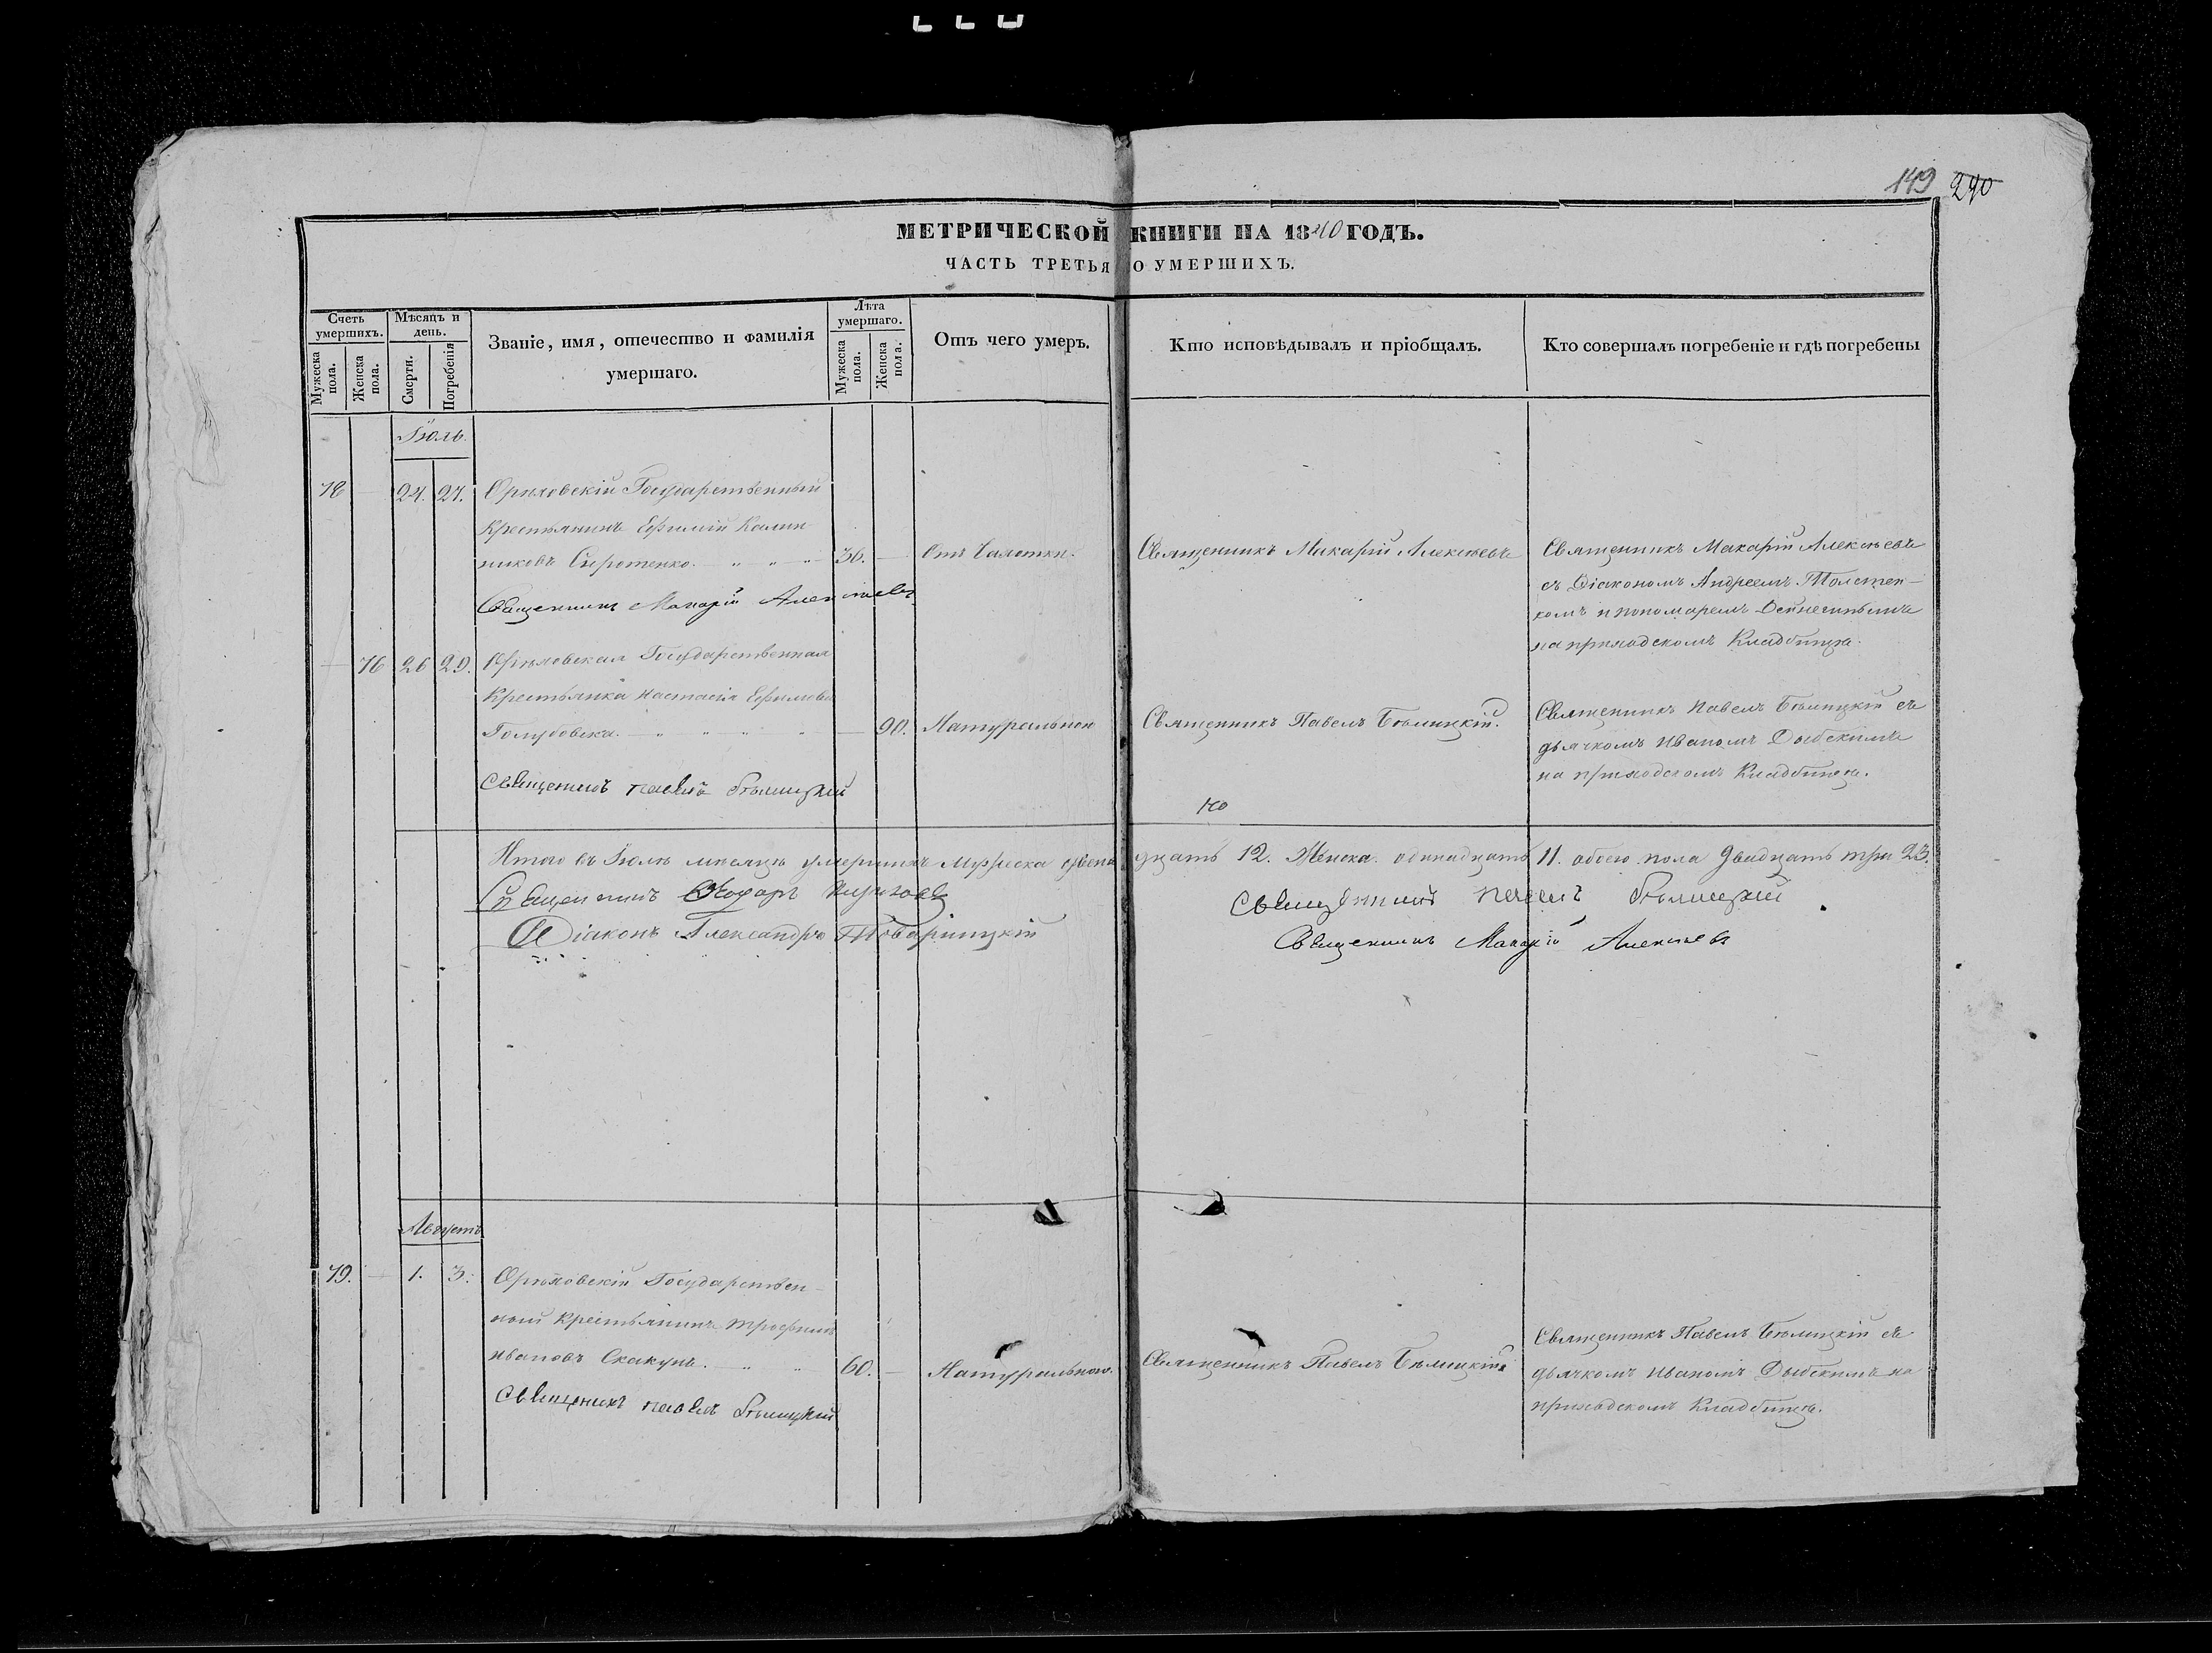 149 290
МЕТРИЧЕСКОЙ КНИГИ НА 1840 ГОДЪ.
ЧАСТЬ ТРЕТЬЯ О УМЕРШИХЪ.
Счетъ умершихъ.
Мужеска пола.
Женска пола.
Мѣсяцъ и день.
Смерти.
Погребенія
Званіе, имя, отечество и фамилія
умершаго.
Лѣта умершаго.
Мужеска пола.
Женска пола.
Отъ чего умеръ.
Кто исповѣдывалъ и пріобщалъ.
Кто совершалъ погребеніе и гдѣ погребены
Іюль.
78 — 24. 27. Орѣховскій Государственный
Крестьянинъ Ефимій Калин
никовъ Сыротенко. — " " " — 36. — Отъ Чахотки. Священникъ Макарій Алексѣевъ
Священникъ Макарій Алексѣевъ
Священникъ Макарій Алексѣевъ
съ Діакономъ Андреемъ Толстен-
комъ и пономаремъ
на приходскомъ Кладбищѣ.
— 76 26 29. Орѣховская Государственная
Крестьянка Настасія Ефимова
Голубовска. — " " " " — 90. Натурально Священникъ Павелъ Бѣлицкій.
Священникъ павелъ Бѣлицкій
Священникъ Павелъ Бѣлицкій съ
дьячкомъ Иваномъ Дыбскимъ
на приходскомъ Кладбищѣ.
Итого въ Іюлѣ мѣсяцѣ умершихъ Мужеска двенадцать 12. Женска одинадцать 11. обоего пола двадцать три 23.
Священникъ
Діаконъ Александръ Товарницкій
Священникъ павелъ Бѣлицкій
Священникъ Макарій Алексѣевъ
Августъ
79. — 1. 3. Орѣховскій Государствен-
ный Крестьянинъ Трофимъ
Ивановъ Скакунъ. — " " 60. — Натурально. Священникъ Павелъ Бѣлицкій
Священникъ павелъ Бѣлицкій
Священникъ Павелъ Бѣлицкій съ
дьячкомъ Иваномъ Дыбскимъ на
приходскомъ Кладбищѣ.